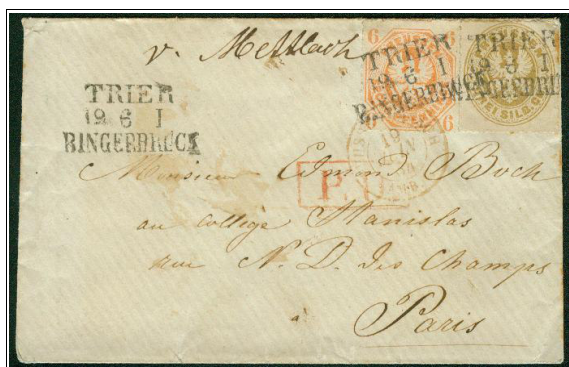 v. Mettlach
TRIER
19 6 I
BINGERBRÜCK
TRIER
19 6 I
BINGERBRÜCK
TRIER
6 6
6 6
P.
Monsieur Edmond Boch
au collège Stanislas
rue N. D. des Champs
à Paris